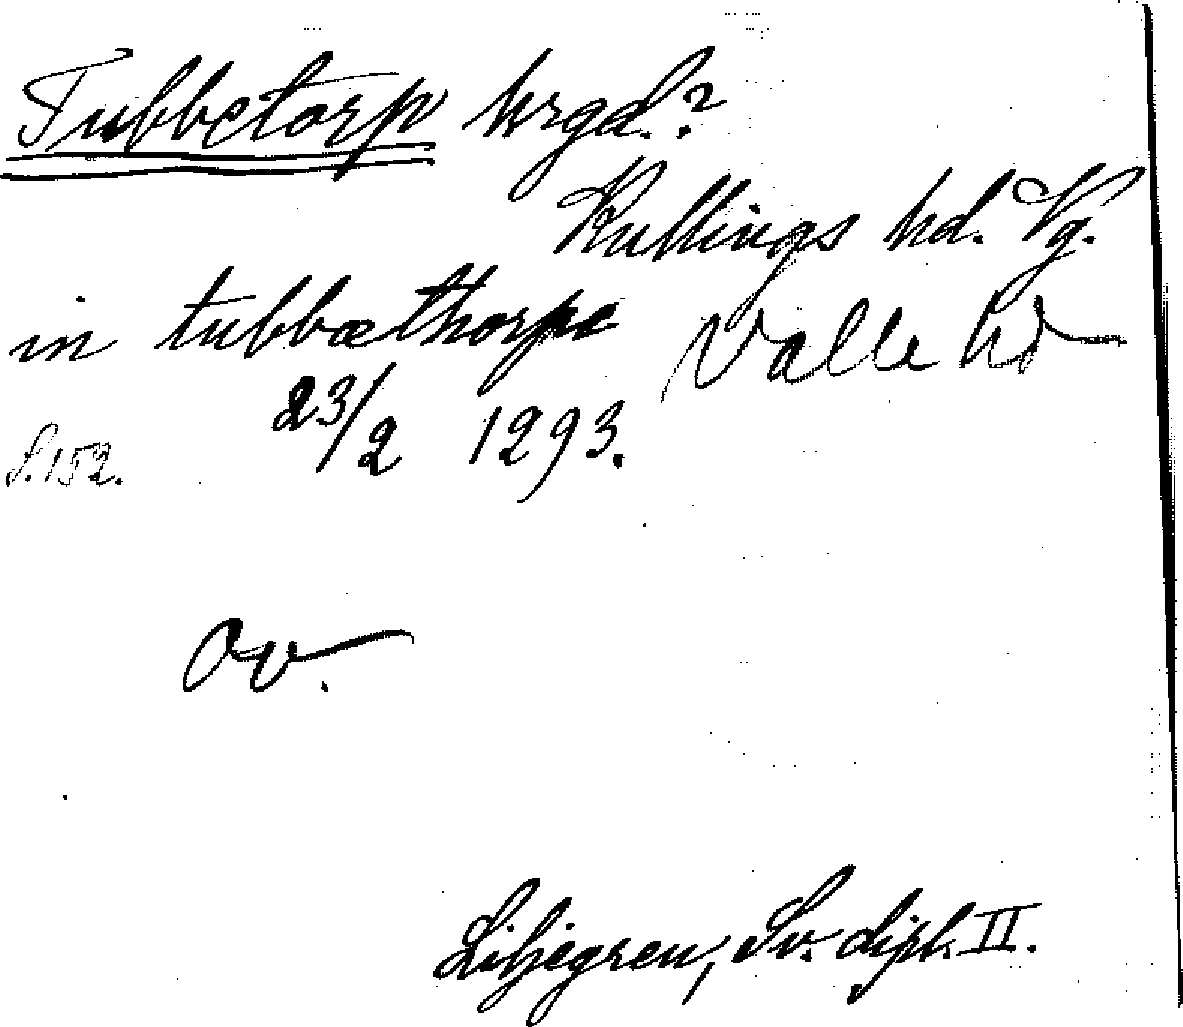 Tubbetorp hrgd.?
Kullings hd. Vg.
in tubbæthorpe Valle hd
23/2 1293.
S. 152.
Ov.
Liljegren, Sv. dipl. II.